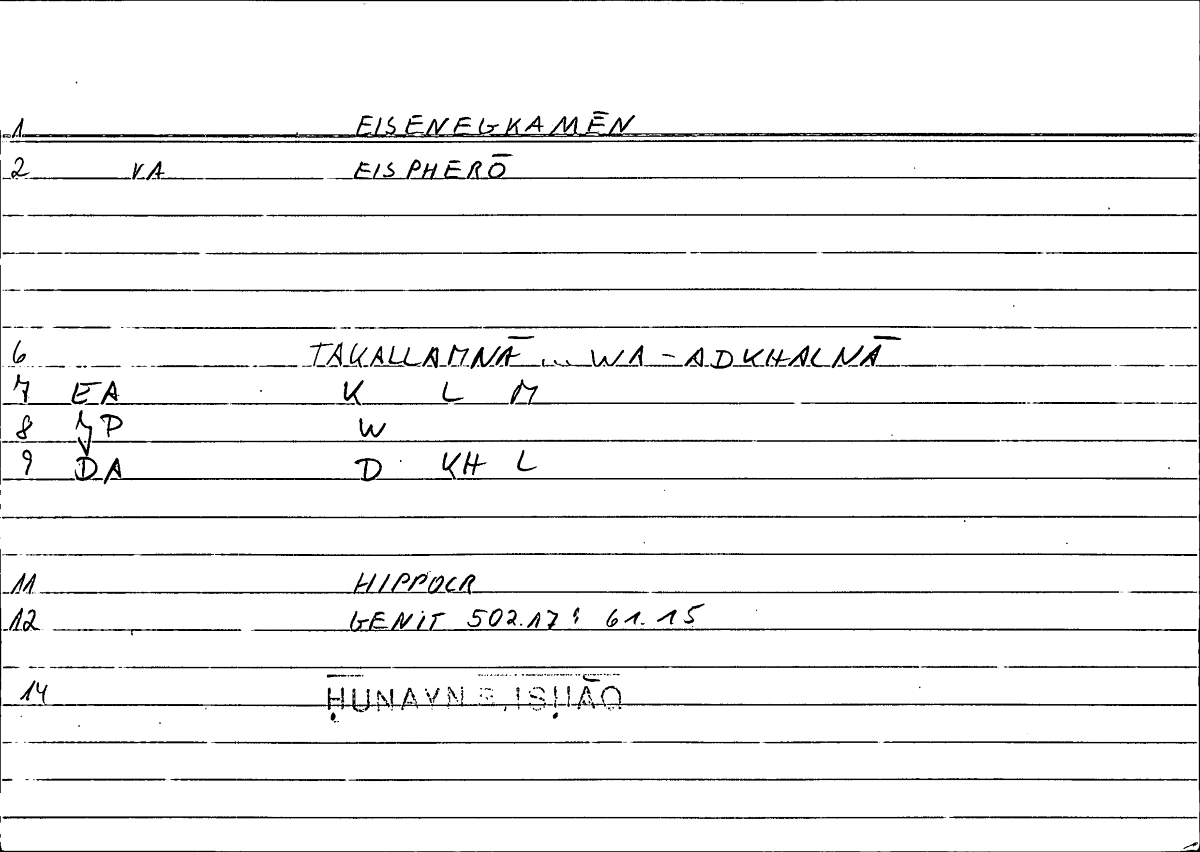 1 EISENEGKAMĒN
2 VA EISPHERŌ
6 TAKALLAMNĀ ... WA-ADKHALNĀ
7 EA K L M
8 P W
9 DA D KH L
11 HIPPOCR
12 GENIT 502.17: 61.15
14 ḤUNAYN B. ISḤĀQ